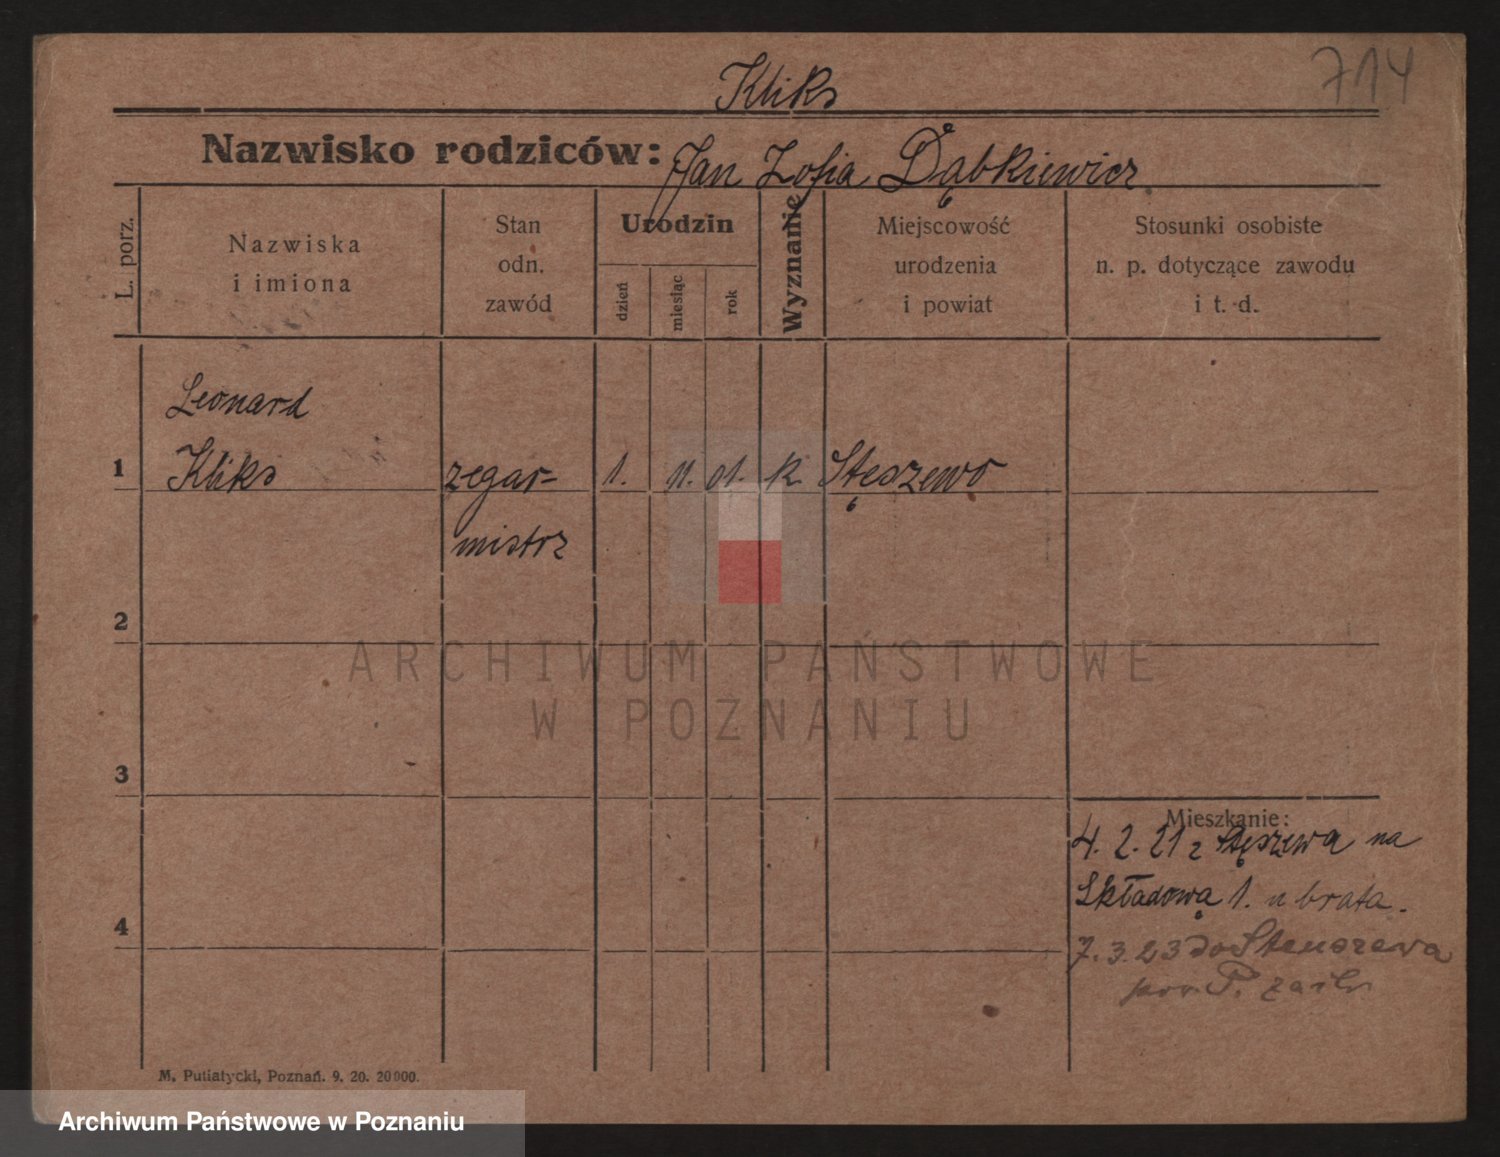 714
Kliks
Nazwisko rodziców: Jan Zofia Dąbkiewicz
L. porz.
Nazwiska
i imiona
Stan
odn.
zawód
Urodzin
dzień
miesiąc
rok
Wyznanie
Miejscowość
urodzenia
i powiat
Stosunki osobiste
n. p. dotyczące zawodu
i t. d.
Leonard
1 Kliks zegar- 1. 11. 01. k Stęszewo
mistrz
2
3
4
Mieszkanie:
4. 2. 21 z Stęszewa na
Składową 1. u brata.
7. 3. 23 do Stenszewa
pow. P.
M. Putiatycki, Poznań. 9. 20. 20000.
ARCHIWUM PAŃSTWOWE
W POZNANIU
Archiwum Państwowe w Poznaniu